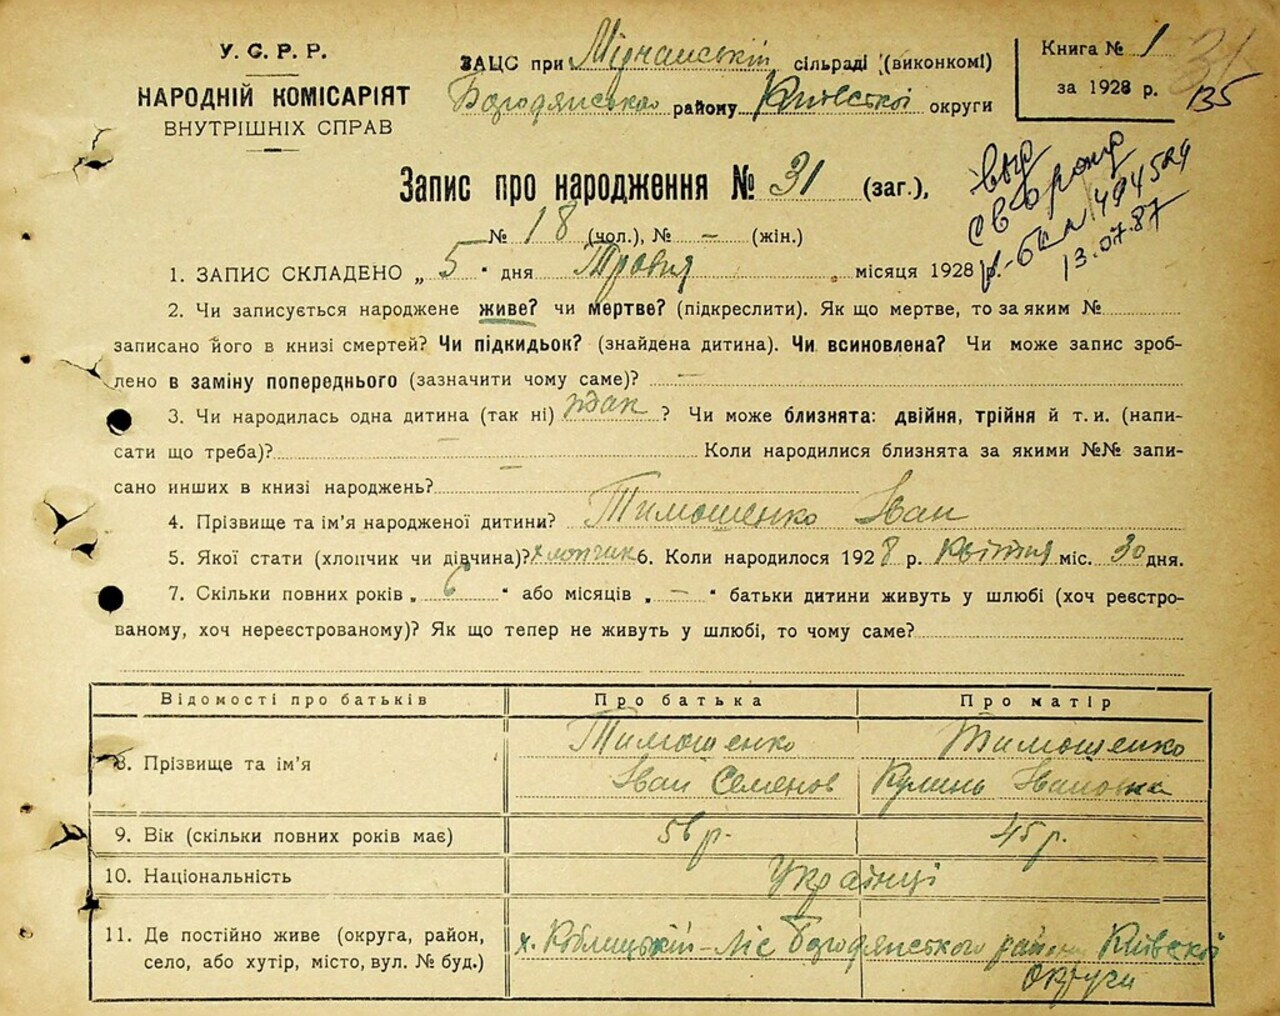 У. С. Р. Р.
НАРОДНІЙ КОМІСАРІЯТ
ВНУТРІШНІХ СПРАВ
ЗАЦС при Мірчанській сільраді (виконкомі)
Бородянського району Київської округи
Книга № 1
за 1928 р.
31
135
Запис про народження № 31 (заг.),
№ 18 (чол.), № — (жін.)
выд
св о рожд
494524
13.07.87
1. ЗАПИС СКЛАДЕНО „ 5 " дня Травня місяця 1928 р.
2. Чи записується народжене живе? чи мертве? (підкреслити). Як що мертве, то за яким №
записано його в книзі смертей? Чи підкидьок? (знайдена дитина). Чи всиновлена? Чи може запис зроб-
лено в заміну попереднього (зазначити чому саме)? —
3. Чи народилась одна дитина (так ні) так ? Чи може близнята: двійня, трійня й т. и. (напи-
сати що треба)? — Коли народилися близнята за якими №№ запи-
сано инших в книзі народжень? —
4. Прізвище та ім'я народженої дитини? Тимошенко Іван
5. Якої стати (хлопчик чи дівчина)? хлопчик 6. Коли народилося 1928 р. Квітня міс. 30 дня.
7. Скільки повних років „ 6 " або місяців „ — " батьки дитини живуть у шлюбі (хоч реєстро-
ваному, хоч нереєстрованому)? Як що тепер не живуть у шлюбі, то чому саме?
Відомості про батьків Про батька Про матір
8. Прізвище та ім'я Тимошенко Іван Семенов Тимошенко Кулина Івановна
9. Вік (скільки повних років має) 56 р. 45 р.
10. Національність Українці
11. Де постійно живе (округа, район,
село, або хутір, місто, вул. № буд.)
х. Коблицький-Ліс Бородянського району Київської
округи